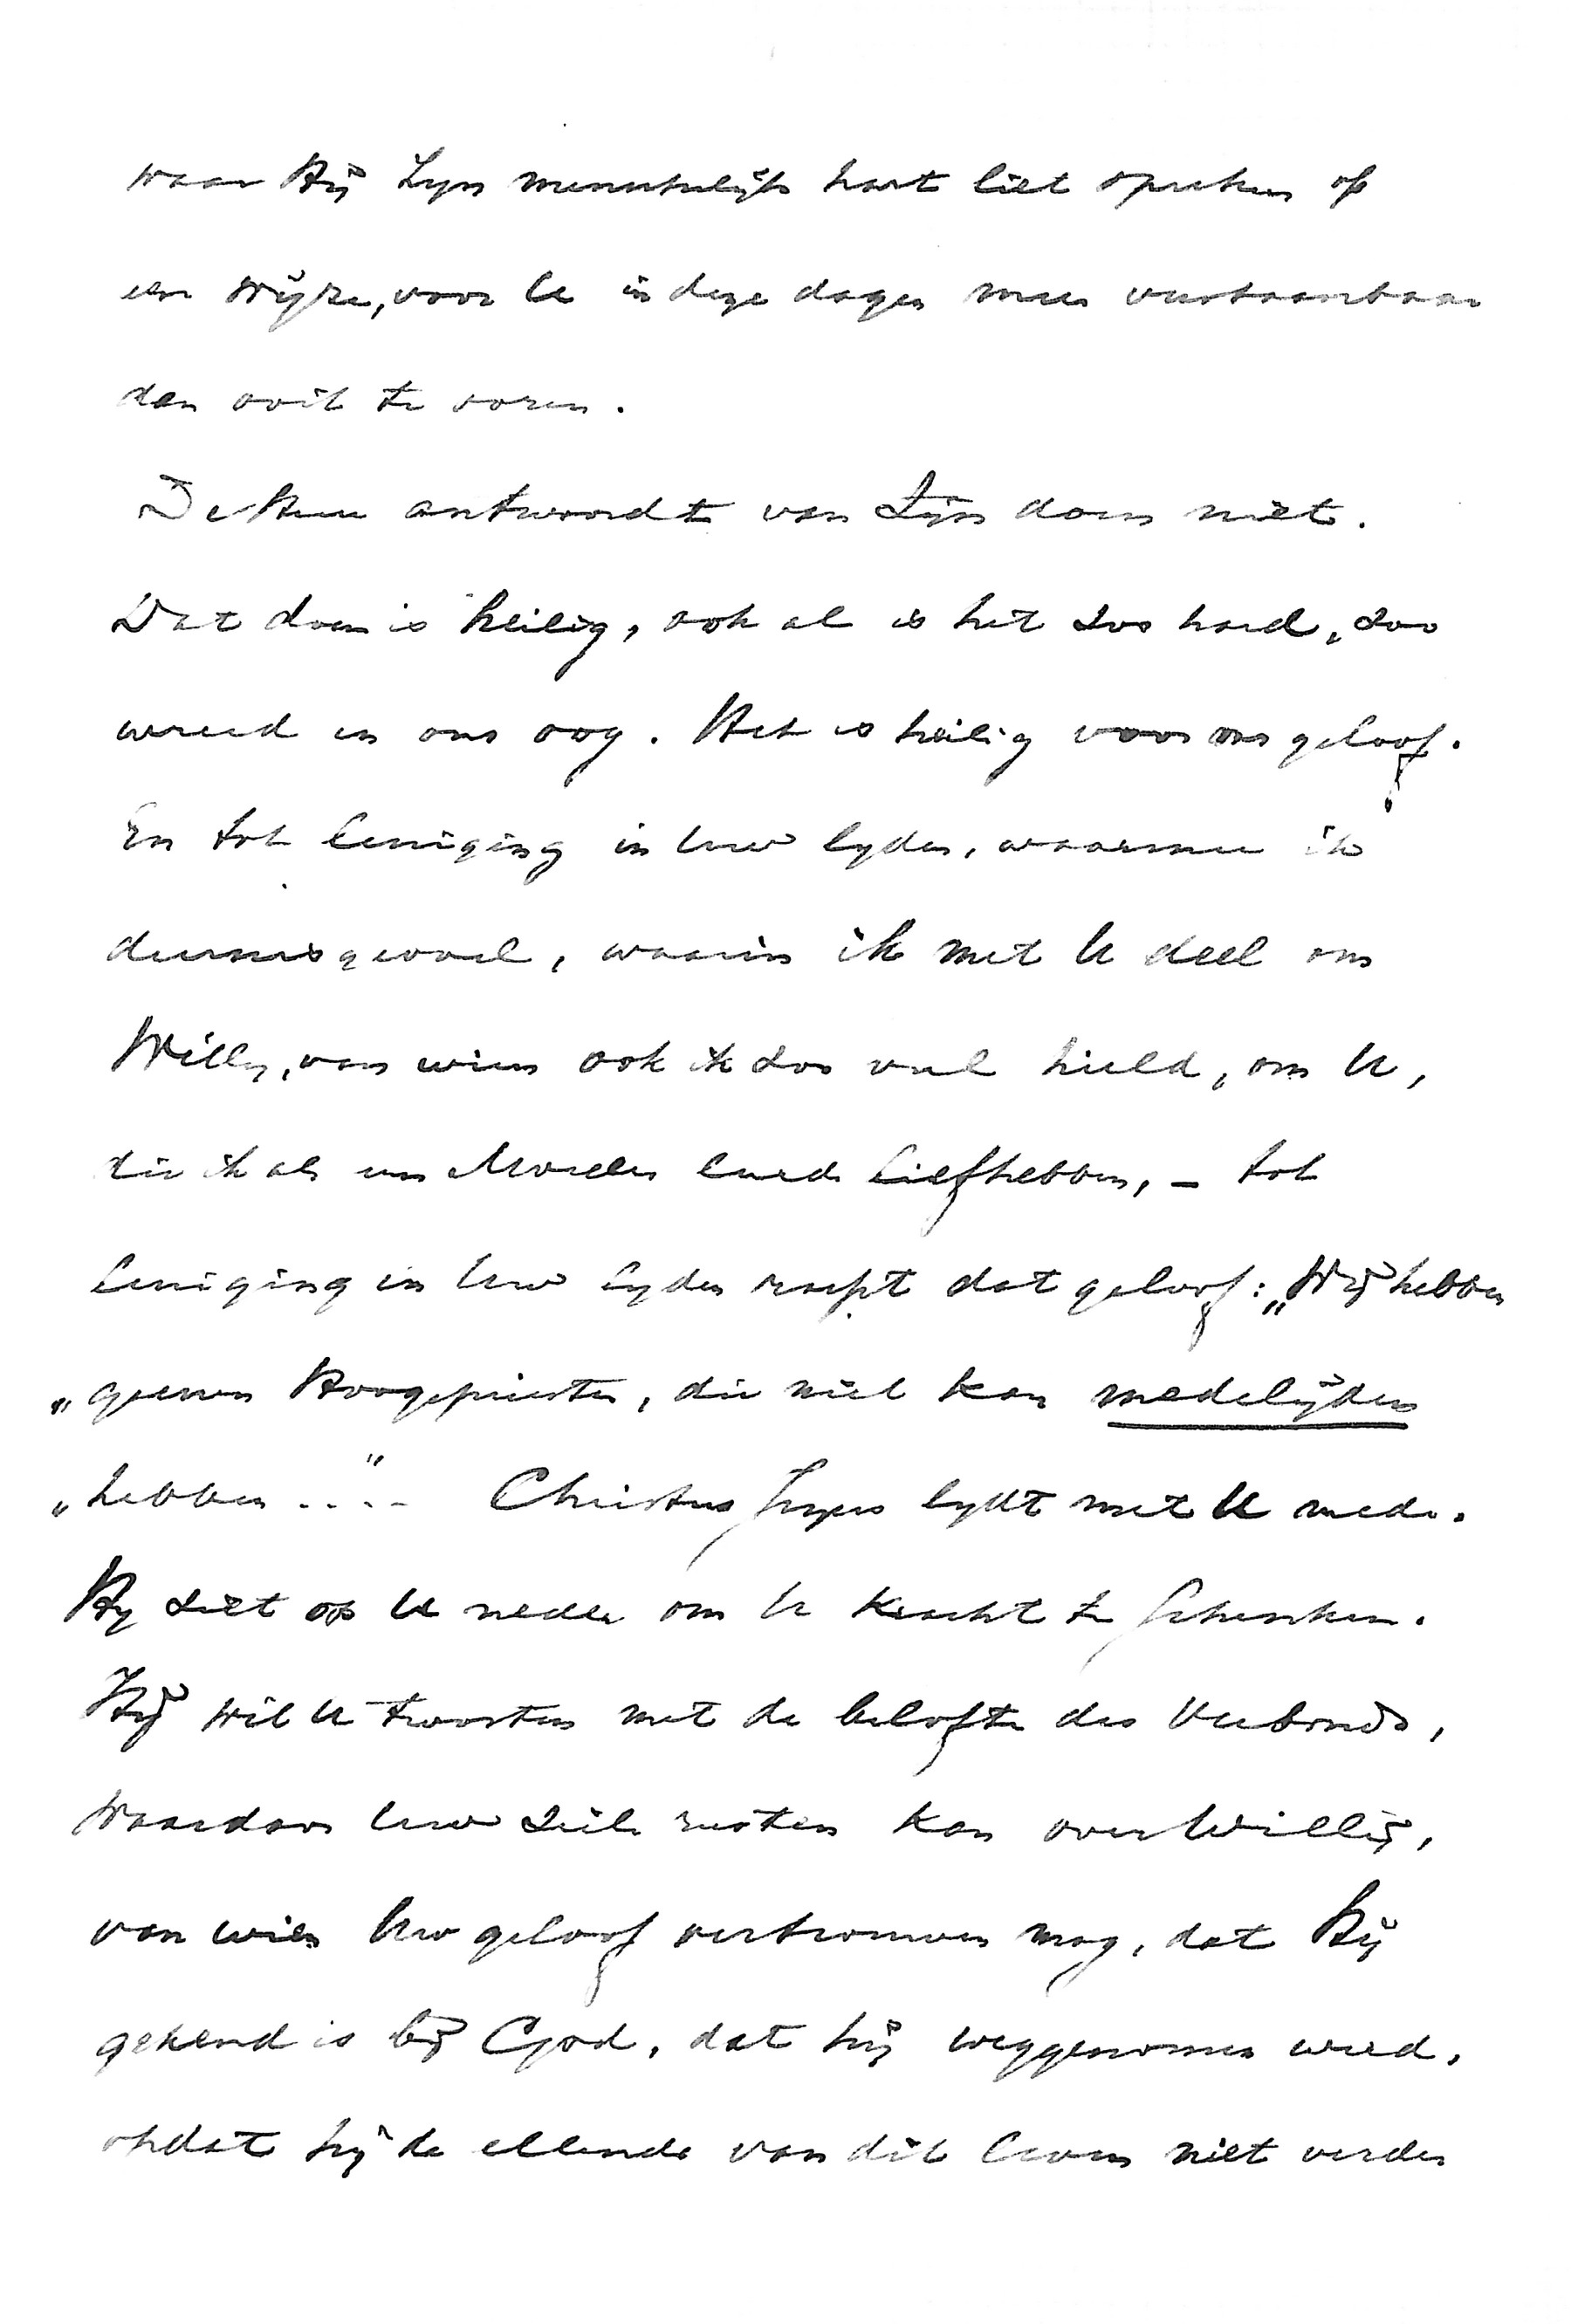 waar Hij Zijn menschelijk hart liet spreken op
een wijze, voor U in deze dagen meer verstaanbaar
dan ooit te voren.
De Heer antwoordt van Zijn doen niet.
Dat doen is heilig, ook al is het zoo hard, zoo
wreed in ons oog. Het is heilig voor ons geloof.
En tot leniging in Uw lyden, waarmee ik
deernis gevoel, waarin ik met U deel om
Willy, van wien ook ik zoo veel hield, om U,
die ik als een Moeder leerde liefhebben, – tot
leniging in Uw lyden roept dat geloof: „Wij hebben
„geenen Hoogepriester, die niet kan medelijden
„hebben ...." Christus Jezus lydt met U mede.
Hy ziet op U neder om U kracht te schenken.
Hij wil U troosten met de belofte des Verbonds,
waardoor Uw ziele rusten kan over Willij,
van wien Uw geloof vertrouwen mag, dat hij
gekend is bij God, dat hij weggenomen werd,
opdat hij de ellende van dit leven niet verder